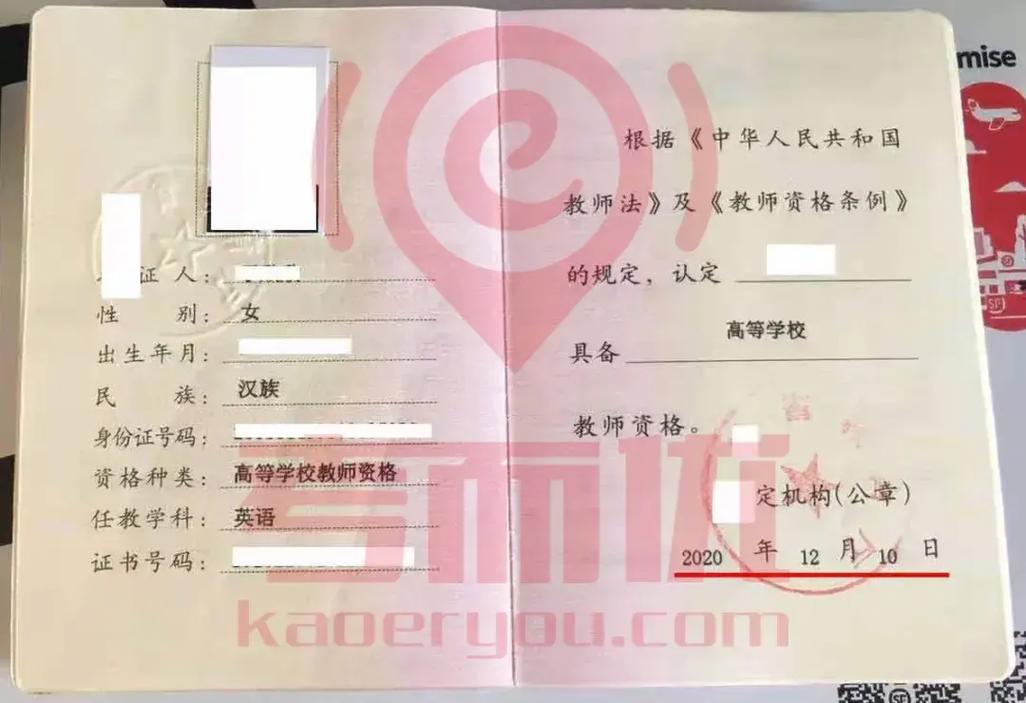 证 人：
性 别： 女
出生年月：
民 族： 汉族
身份证号码：
资格种类： 高等学校教师资格
任教学科： 英语
证书号码：
根据《中华人民共和国
教师法》及《教师资格条例》
的规定，认定
具备 高等学校
教师资格。
定机构(公章)
2020 年 12 月 10 日
考而优
kaoeryou.com
mise
SF
SF